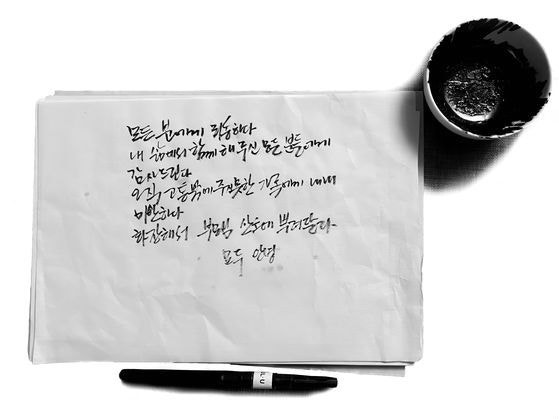 모든 분에게 죄송하다
내 삶에서 함께 해 주신 모든 분들에게
감사드린다
오직 고통밖에 주지 못한 가족에게 내내
미안하다
화장해서 부모님 산소에 뿌려달라
모두 안녕